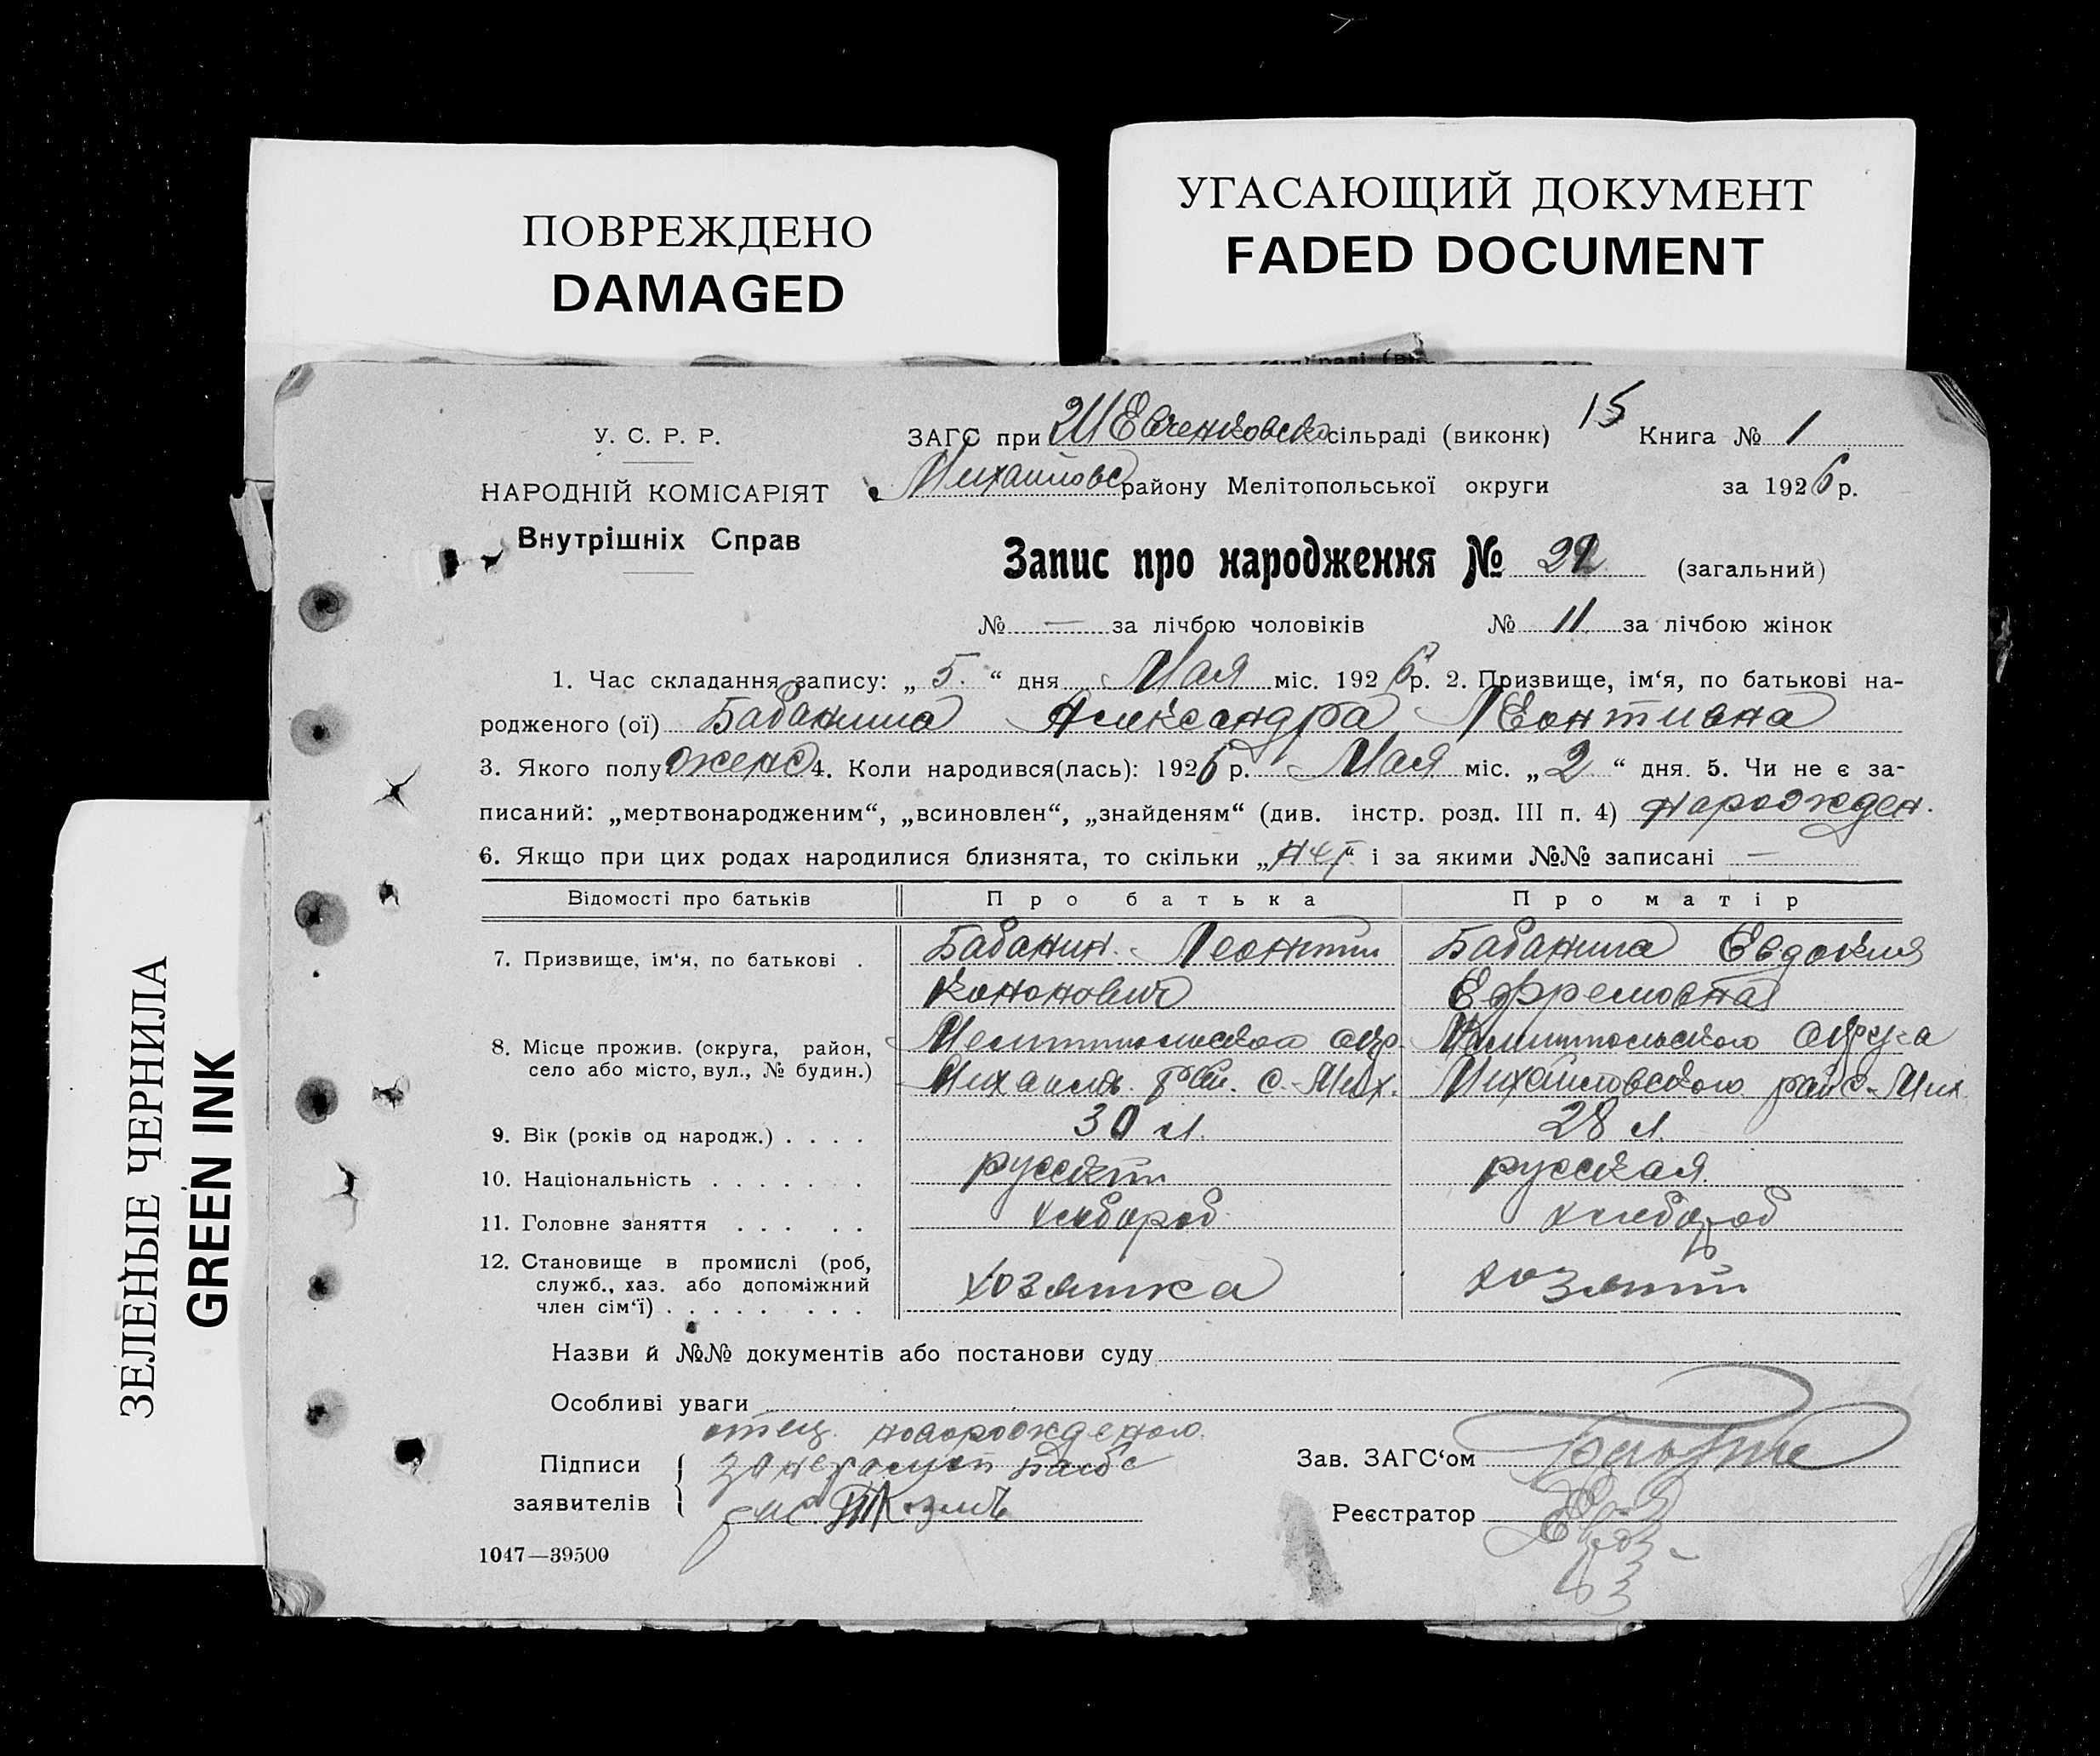 ПОВРЕЖДЕНО
DAMAGED
УГАСАЮЩИЙ ДОКУМЕНТ
FADED DOCUMENT
ЗЕЛЕНЫЕ ЧЕРНИЛА
GREEN INK
У. С. Р. Р.
НАРОДНІЙ КОМІСАРІЯТ
Внутрішніх Справ
ЗАГС при Шевченковско сільраді (виконк) 15 Книга № 1
Михайловс району Мелітопольської округи за 1926 р.
Запис про народження № 22 (загальний)
№ — за лічбою чоловіків № 11 за лічбою жінок
1. Час складання запису: „ 5. “ дня Мая міс. 1926 р. 2. Призвище, ім‘я, по батькові на-
родженого (ої) Бабанина Александра Леонтиевна
3. Якого полу женс 4. Коли народився(лась): 1926 р. Мая міс. „ 2 “ дня. 5. Чи не є за-
писаний: „мертвонародженим“, „всиновлен“, „знайденям“ (див. інстр. розд. III п. 4) нарожден.
6. Якщо при цих родах народилися близнята, то скільки „нет“ і за якими №№ записані —
Відомості про батьків Про батька Про матір
7. Призвище, ім‘я, по батькові . Бабанин Леонтий Бабанина Евдокия
Кононович Ефремовна
8. Місце прожив. (округа, район, Мелитопольского окр. Мелитопольского округа
село або місто, вул., № будин.) Михайлов. рай. с. Мих. Михайловского рай с. Мих
9. Вік (років од народж.) . . . . 30 л. 28 л.
10. Національність . . . . . . . русский русская
11. Головне заняття . . . . . хлебороб хлебороб
12. Становище в промислі (роб,
служб., хаз. або допоміжний хозяйка хозяин
член сім‘ї) . . . . . . . . .
Назви й №№ документів або постанови суду
Особливі уваги
отец новорожденого
Підписи за неграмот
заявителів рас.
Зав. ЗАГС‘ом
Реєстратор
1047—39500